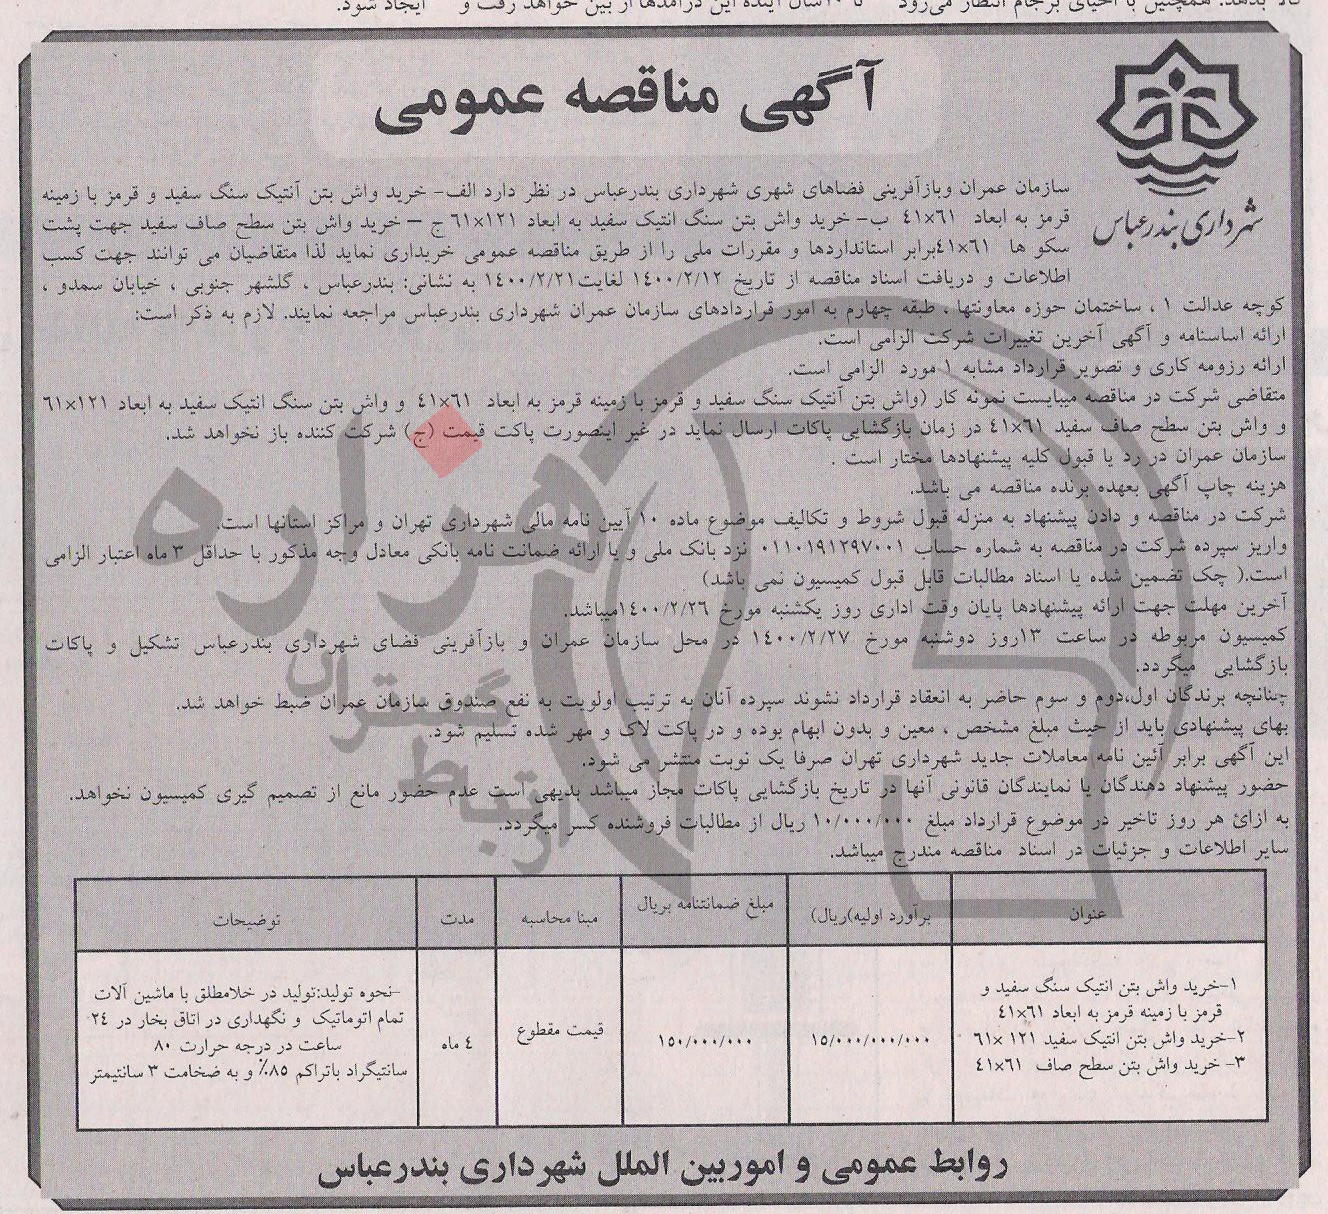 کالا بدهد. همچنین با احیای برجام انتظار می‌رود
تا ۱۰سال آینده این درآمدها از بین خواهد رفت و
ایجاد شود.
آگهی مناقصه عمومی
شهرداری بندرعباس
سازمان عمران وبازآفرینی فضاهای شهری شهرداری بندرعباس در نظر دارد الف- خرید واش بتن آنتیک سنگ سفید و قرمز با زمینه
قرمز به ابعاد ۶۱×۴۱ ب- خرید واش بتن سنگ انتیک سفید به ابعاد ۱۲۱×۶۱ ج – خرید واش بتن سطح صاف سفید جهت پشت
سکو ها ۶۱×۴۱برابر استانداردها و مقررات ملی را از طریق مناقصه عمومی خریداری نماید لذا متقاضیان می توانند جهت کسب
اطلاعات و دریافت اسناد مناقصه از تاریخ ۱۴۰۰/۲/۱۲ لغایت۱۴۰۰/۲/۲۱ به نشانی: بندرعباس ، گلشهر جنوبی ، خیابان سمدو ،
کوچه عدالت ۱ ، ساختمان حوزه معاونتها ، طبقه چهارم به امور قراردادهای سازمان عمران شهرداری بندرعباس مراجعه نمایند. لازم به ذکر است:
ارائه اساسنامه و آگهی آخرین تغییرات شرکت الزامی است.
ارائه رزومه کاری و تصویر قرارداد مشابه ۱ مورد الزامی است.
متقاضی شرکت در مناقصه میبایست نمونه کار (واش بتن آنتیک سنگ سفید و قرمز با زمینه قرمز به ابعاد ۶۱×۴۱ و واش بتن سنگ انتیک سفید به ابعاد ۱۲۱×۶۱
و واش بتن سطح صاف سفید ۶۱×۴۱ در زمان بازگشایی پاکات ارسال نماید در غیر اینصورت پاکت قیمت (ج) شرکت کننده باز نخواهد شد.
سازمان عمران در رد یا قبول کلیه پیشنهادها مختار است .
هزینه چاپ آگهی بعهده برنده مناقصه می باشد.
شرکت در مناقصه و دادن پیشنهاد به منزله قبول شروط و تکالیف موضوع ماده ۱۰ آیین نامه مالی شهرداری تهران و مراکز استانها است.
واریز سپرده شرکت در مناقصه به شماره حساب ۰۱۱۰۱۹۱۲۹۷۰۰۱ نزد بانک ملی و یا ارائه ضمانت نامه بانکی معادل وجه مذکور با حداقل ۳ ماه اعتبار الزامی
است.( چک تضمین شده یا اسناد مطالبات قابل قبول کمیسیون نمی باشد)
آخرین مهلت جهت ارائه پیشنهادها پایان وقت اداری روز یکشنبه مورخ ۱۴۰۰/۲/۲۶میباشد.
کمیسیون مربوطه در ساعت ۱۳روز دوشنبه مورخ ۱۴۰۰/۲/۲۷ در محل سازمان عمران و بازآفرینی فضای شهرداری بندرعباس تشکیل و پاکات
بازگشایی میگردد.
چنانچه برندگان اول،دوم و سوم حاضر به انعقاد قرارداد نشوند سپرده آنان به ترتیب اولویت به نفع صندوق سازمان عمران ضبط خواهد شد.
بهای پیشنهادی باید از حیث مبلغ مشخص ، معین و بدون ابهام بوده و در پاکت لاک و مهر شده تسلیم شود.
این آگهی برابر آئین نامه معاملات جدید شهرداری تهران صرفا یک نوبت منتشر می شود.
حضور پیشنهاد دهندگان یا نمایندگان قانونی آنها در تاریخ بازگشایی پاکات مجاز میباشد بدیهی است عدم حضور مانع از تصمیم گیری کمیسیون نخواهد.
به ازائ هر روز تاخیر در موضوع قرارداد مبلغ ۱۰/۰۰۰/۰۰۰ ریال از مطالبات فروشنده کسر میگردد.
سایر اطلاعات و جزئیات در اسناد مناقصه مندرج میباشد.
هزاره
ارتباط گستران
عنوان
برآورد اولیه)(ریال)
مبلغ ضمانتنامه بریال
مبنا محاسبه
مدت
توضیحات
۱-خرید واش بتن انتیک سنگ سفید و
قرمز با زمینه قرمز به ابعاد ۶۱×۴۱
۲-خرید واش بتن انتیک سفید ۱۲۱ ×۶۱
۳- خرید واش بتن سطح صاف ۶۱×۴۱
۱۵/۰۰۰/۰۰۰/۰۰۰
۱۵۰/۰۰۰/۰۰۰
قیمت مقطوع
٤ ماه
-نحوه تولید:تولید در خلامطلق با ماشین آلات
تمام اتوماتیک و نگهداری در اتاق بخار در ۲۴
ساعت در درجه حرارت ۸۰
سانتیگراد باتراکم ۸۵٪ و به ضخامت ۳ سانتیمتر
روابط عمومی و اموربین الملل شهرداری بندرعباس